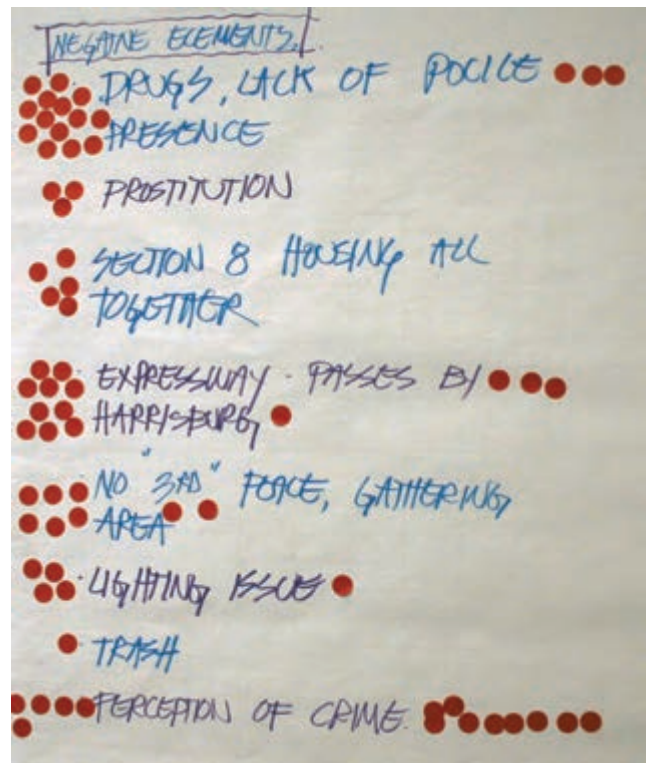 NEGATIVE ELEMENTS.
DRUGS, LACK OF POLICE
PRESENCE
PROSTITUTION
SECTION 8 HOUSING ALL
TOGETHER
EXPRESSWAY - PASSES BY
HARRISBURG
NO "3RD" PLACE, GATHERING
AREA
LIGHTING ISSUE
TRASH
PERCEPTION OF CRIME.